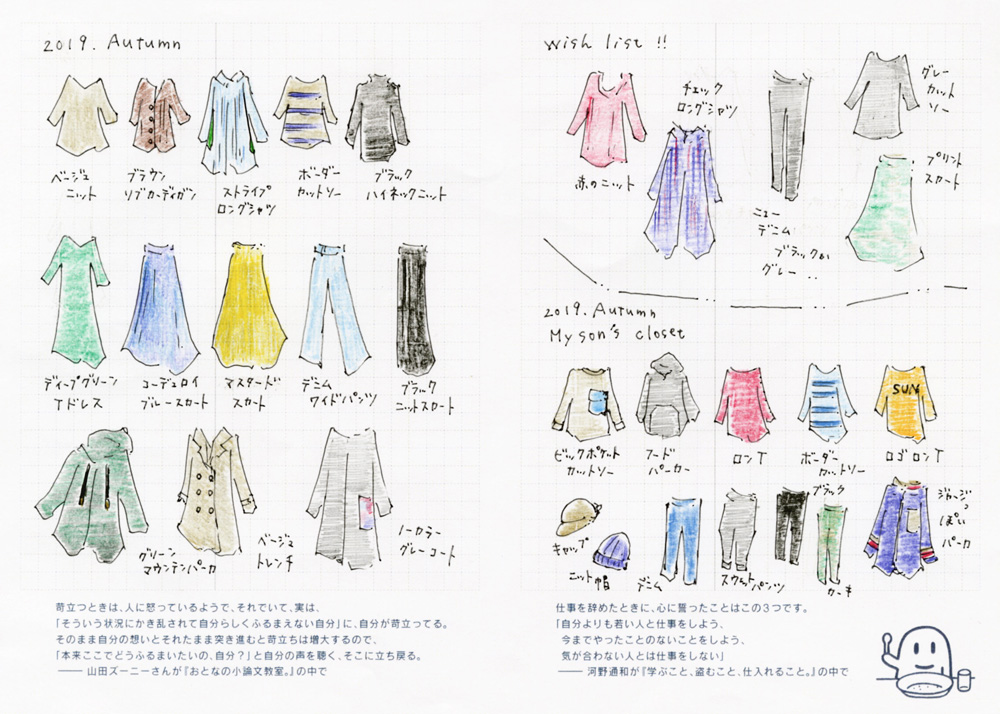 2019. Autumn
ベージュ
ニット
ブラウン
リブカーディガン
ストライプ
ロングシャツ
ボーダー
カットソー
ブラック
ハイネックニット
ディープグリーン
Tドレス
コーデュロイ
ブルースカート
マスタード
スカート
デニム
ワイドパンツ
ブラック
ニットスカート
グリーン
マウンテンパーカ
ベージュ
トレンチ
ノーカラー
グレーコート
苛立つときは、人に怒っているようで、それでいて、実は、
「そういう状況にかき乱されて自分らしくふるまえない自分」に、自分が苛立ってる。
そのまま自分の想いとそれたまま突き進むと苛立ちは増大するので、
「本来ここでどうふるまいたいの、自分?」と自分の声を聴く、そこに立ち戻る。
—— 山田ズーニーさんが『おとなの小論文教室。』の中で
wish list !!
赤のニット
チェック
ロングシャツ
ニュー
デニム
ブラックか
グレー ..
グレー
カット
ソー
プリント
スカート
2019. Autumn
My son's closet
SUN
ビックポケット
カットソー
フード
パーカー
ロンT
ボーダー
カットソー
ロゴロンT
キャップ
ニット帽
デニム
スウェットパンツ
ブラック
カーキ
ジャージっ
ぽい
パーカ
仕事を辞めたときに、心に誓ったことはこの3つです。
「自分よりも若い人と仕事をしよう、
今までやったことのないことをしよう、
気が合わない人とは仕事をしない」
—— 河野通和が『学ぶこと、盗むこと、仕入れること。』の中で